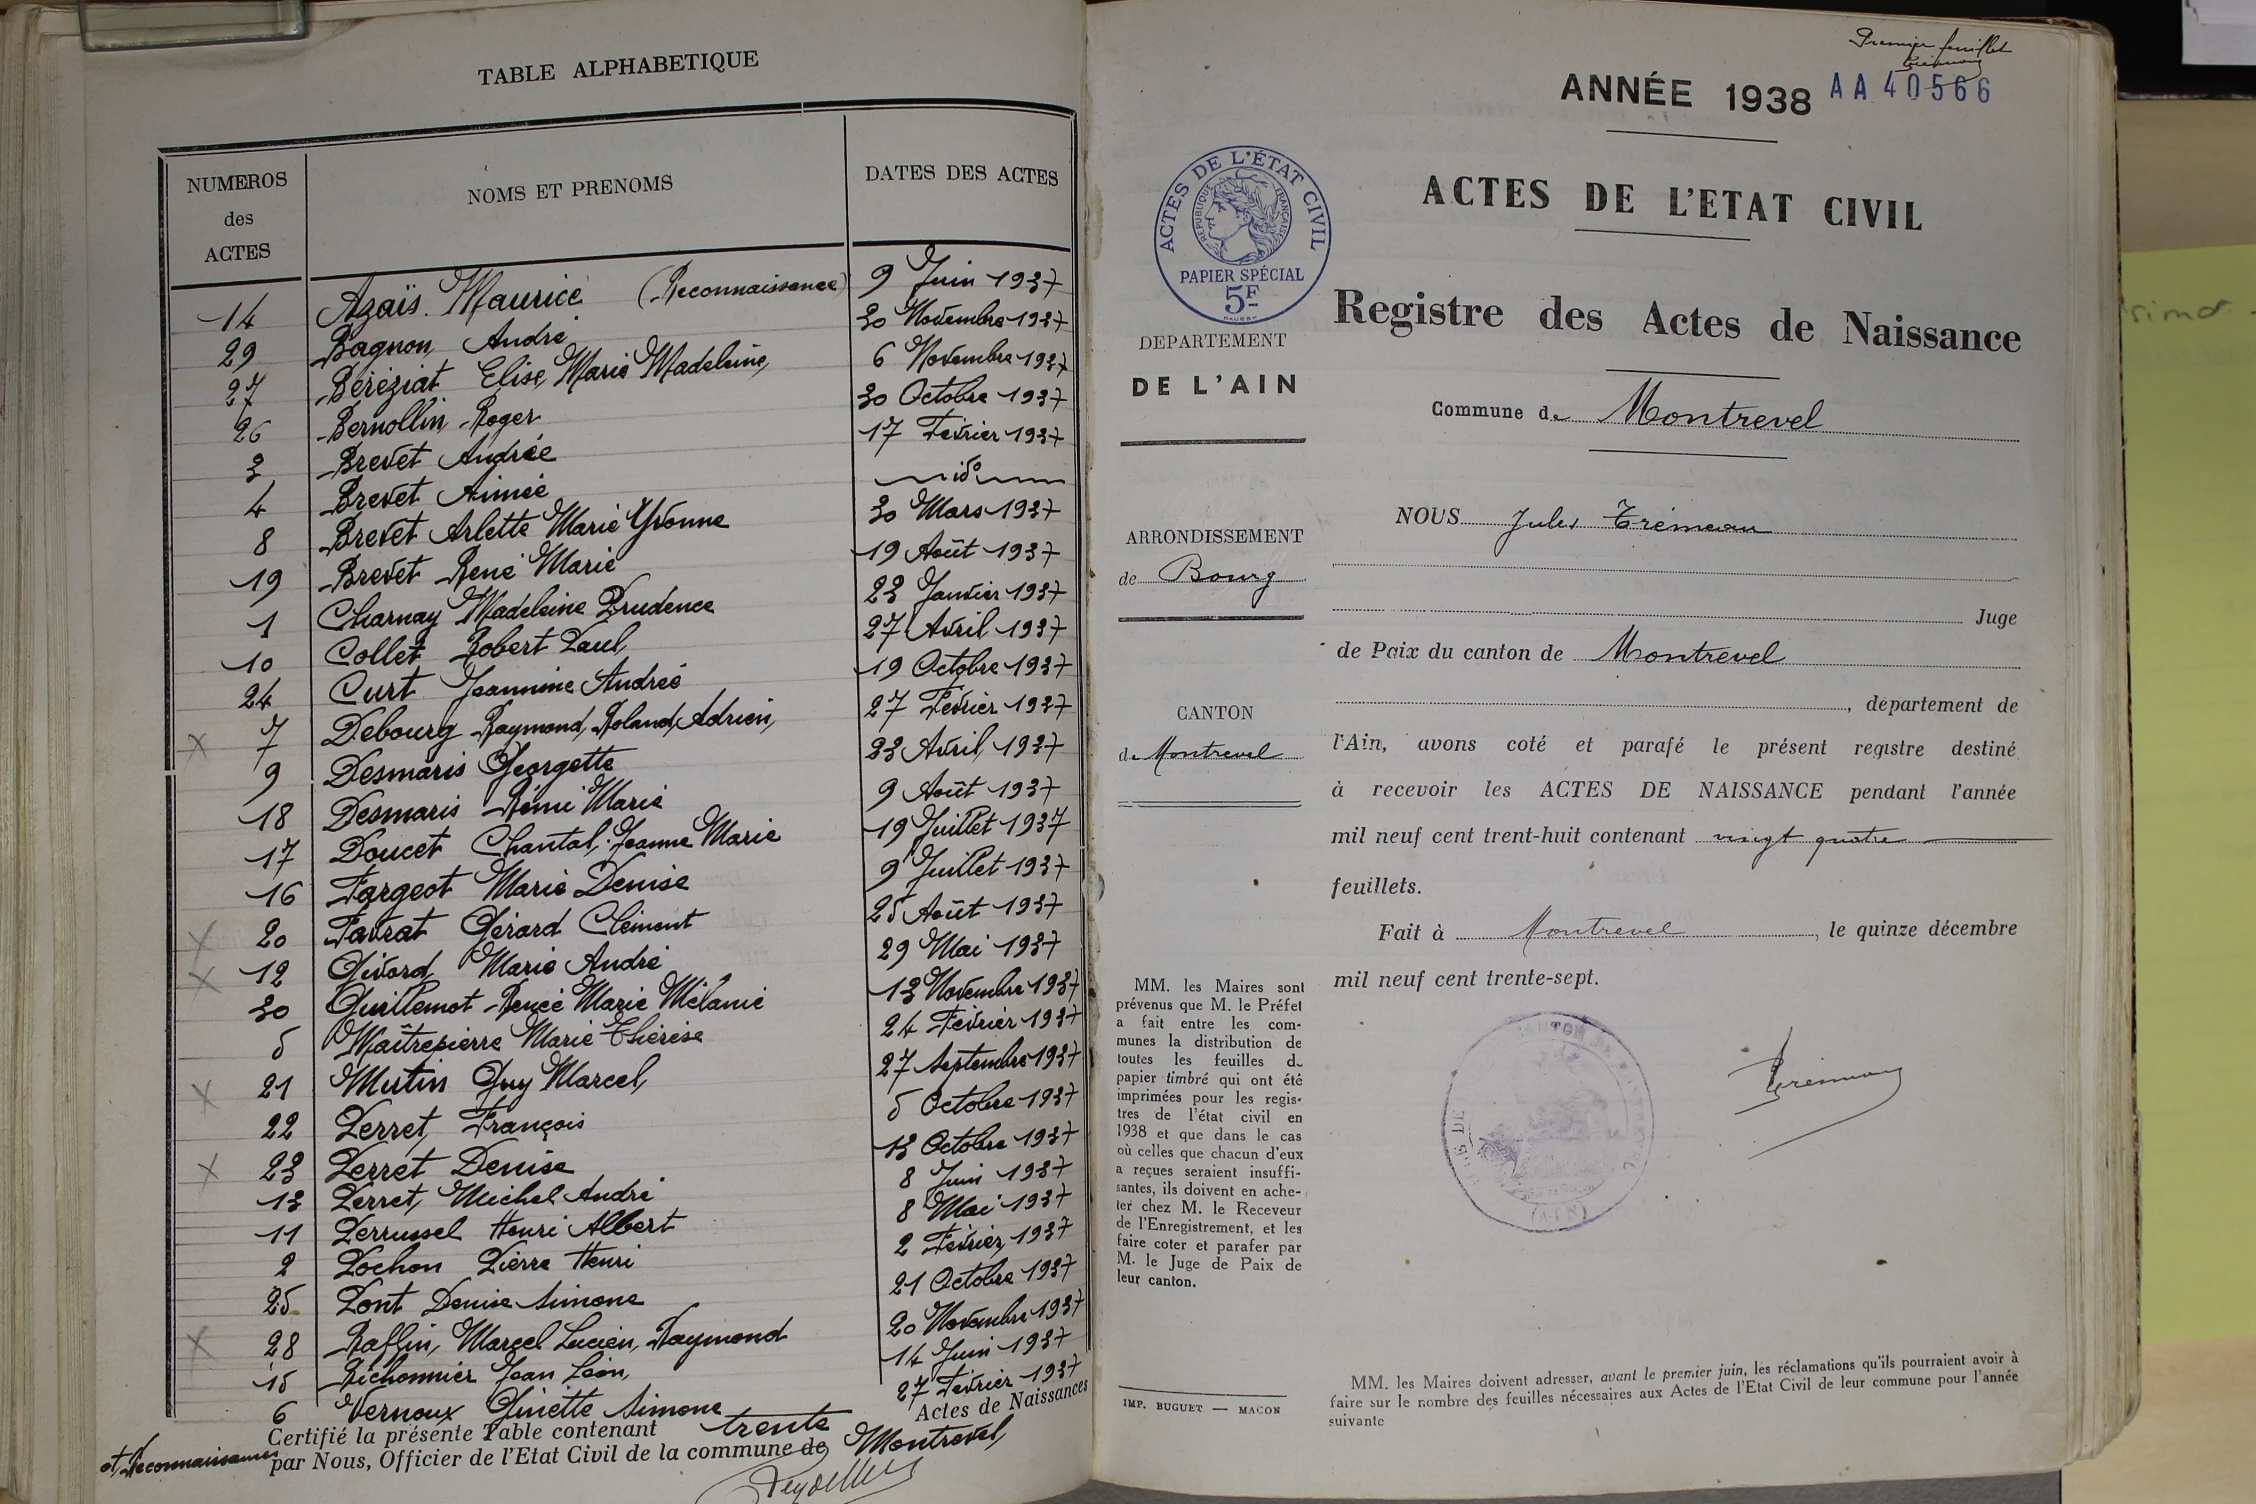 TABLE ALPHABETIQUE
NUMEROS des ACTES | NOMS ET PRENOMS | DATES DES ACTES
14 Azaïs Maurice (Reconnaissance) 9 Juin 1937
29 Bagnon, André 30 Novembre 1937
27 Béréziat Elise, Marie Madeleine, 6 Novembre 1937
26 Bernollin, Roger 30 Octobre 1937
3 Brevet Andrée 17 Février 1937
4 Brevet Aimée do
8 Brevet Arlette Marie Yvonne 30 Mars 1937
19 Brevet René Marie 19 Août 1937
1 Charnay Madeleine Prudence 23 Janvier 1937
10 Collet Robert Paul, 27 Avril 1937
24 Curt Jeannine Andrée 19 Octobre 1937
X 7 Debourg Raymond, Roland, Adrien, 27 Février 1937
9 Desmaris Georgette 23 Avril 1937
18 Desmaris Rémi Marie 9 Août 1937
17 Doucet Chantal, Jeanne Marie 19 Juillet 1937
16 Fargeot Marie Denise 9 Juillet 1937
X 20 Favrat Gérard Clément 25 Août 1937
X 12 Givord, Marie André 29 Mai 1937
30 Guillemot Renée Marie Mélanie 13 Novembre 1937
5 Maîtrepierre Marie Thérèse 24 Février 1937
X 21 Mutin Guy Marcel, 27 Septembre 1937
22 Perret, François 5 Octobre 1937
X 23 Perret Denise 13 Octobre 1937
13 Perret, Michel André 8 Juin 1937
11 Perrussel Henri Albert 8 Mai 1937
2 Pochon Pierre Henri 2 Février, 1937
25 Pont Denise Simone 21 Octobre 1937
X 28 Raffin, Marcel Lucien, Raymond 20 Novembre 1937
15 Richonnier Jean Léon, 14 Juin 1937
6 Vernoux Ginette Simone 27 Février 1937
Certifié la présente Table contenant trente Actes de Naissances
et Reconnaissances par Nous, Officier de l'Etat Civil de la commune de Montrevel,
Premier feuillet
ANNÉE 1938 AA 40566
ACTES DE L'ÉTAT CIVIL
RÉPUBLIQUE FRANÇAISE
PAPIER SPÉCIAL
5F
ACTES DE L'ETAT CIVIL
Registre des Actes de Naissance
DEPARTEMENT
DE L'AIN
Commune de Montrevel
ARRONDISSEMENT
de Bourg
CANTON
de Montrevel
NOUS Jules Trémeau
Juge
de Paix du canton de Montrevel
, département de
l'Ain, avons coté et parafé le présent registre destiné
à recevoir les ACTES DE NAISSANCE pendant l'année
mil neuf cent trent-huit contenant vingt quatre
feuillets.
Fait à Montrevel, le quinze décembre
mil neuf cent trente-sept.
MM. les Maires sont
prévenus que M. le Préfet
a fait entre les com-
munes la distribution de
toutes les feuilles de
papier timbré qui ont été
imprimées pour les regis-
tres de l'état civil en
1938 et que dans le cas
où celles que chacun d'eux
a reçues seraient insuffi-
santes, ils doivent en ache-
ter chez M. le Receveur
de l'Enregistrement, et les
faire coter et parafer par
M. le Juge de Paix de
leur canton.
(AIN)
IMP. BUGUET — MACON
MM. les Maires doivent adresser, avant le premier juin, les réclamations qu'ils pourraient avoir à
faire sur le nombre des feuilles nécessaires aux Actes de l'Etat Civil de leur commune pour l'année
suivante